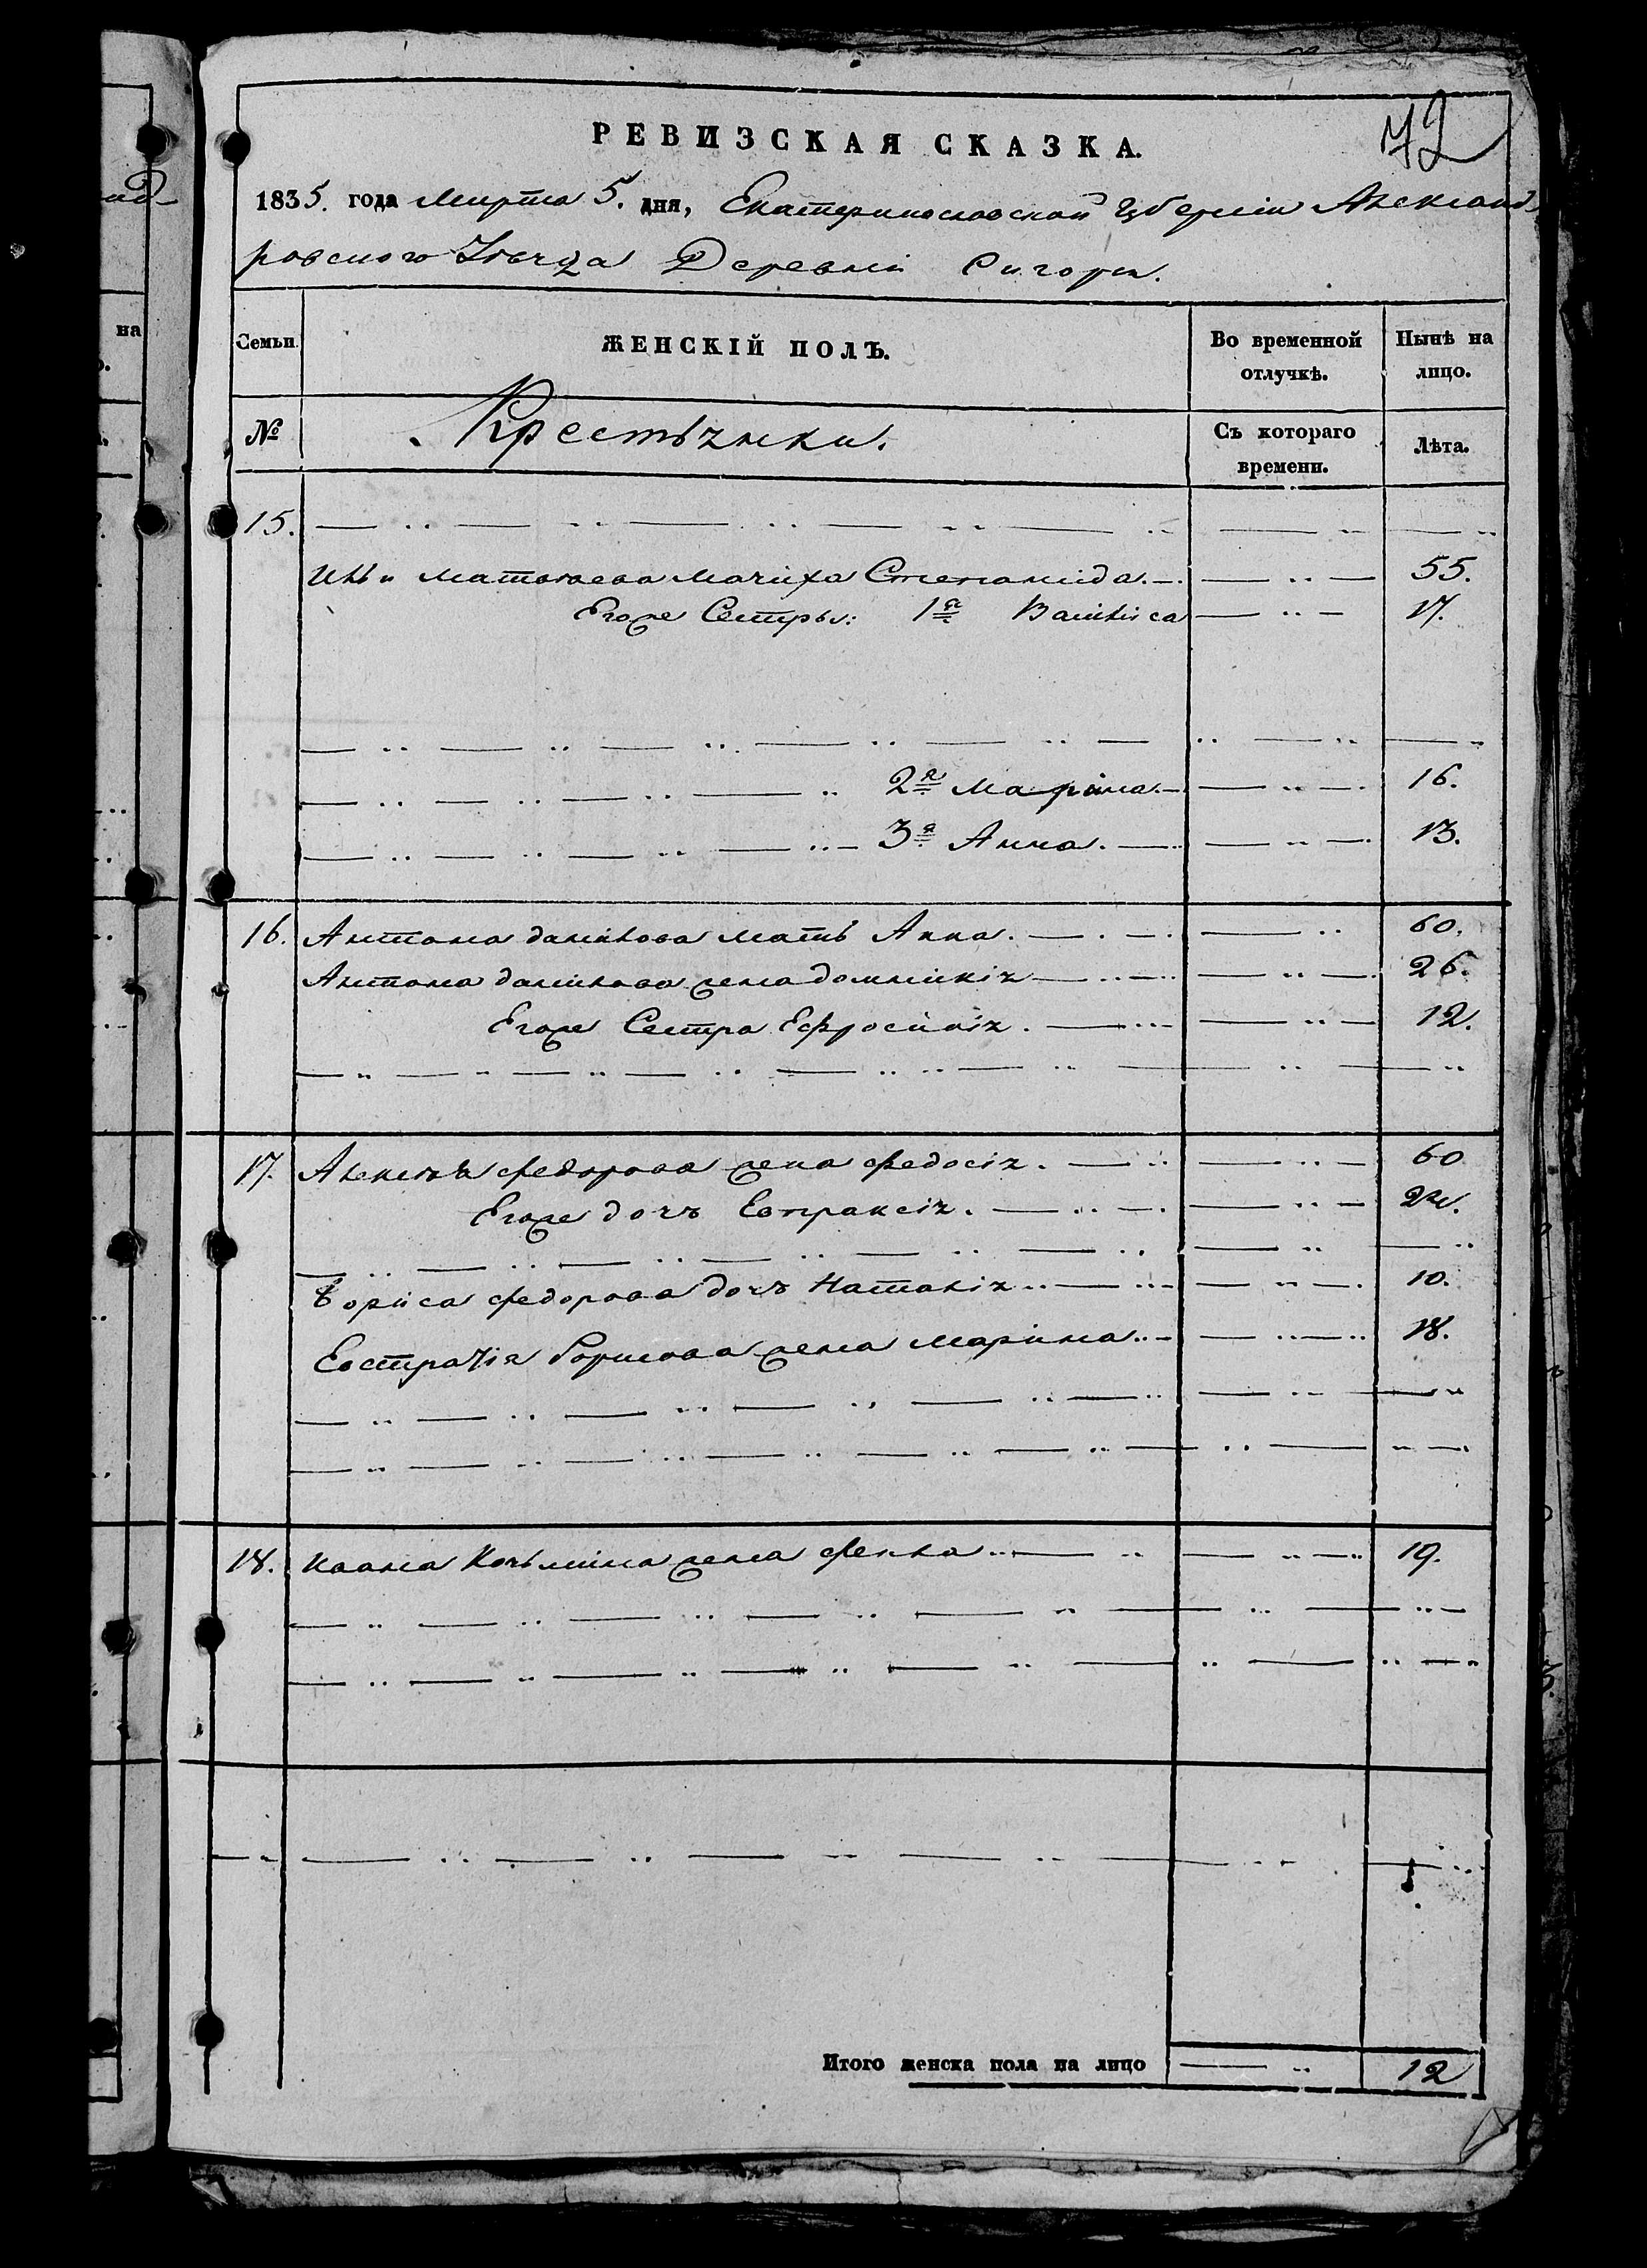 72
РЕВИЗСКАЯ СКАЗКА.
1835. года Марта 5. дня, Екатеринославской Губерніи Александ-
ровского Уѣзда Деревни
Семьи. ЖЕНСКІЙ ПОЛЪ. Во временной отлучкѣ. Нынѣ на лицо.
№ Крестьянки. Съ котораго времени. Лѣта.
15.
Ильи Матвѣева Мачиха Степанида 55.
Егоже Сестры: 1я Василиса 17.
2я Марина 16.
3я Анна. 13.
16. Антона данилова мать Анна. 60.
Антона данилова жена домникія 26.
Егоже Сестра Ефросинія. 12.
17. Алексѣя федорова жена федосія. 60
Егоже дочь Евпраксія.
Бориса федорова дочь Наталія 10.
Евстратія Борисова жена Марина 18.
18. Ивана Козьмина жена 19.
Итого женска пола на лицо 12
на